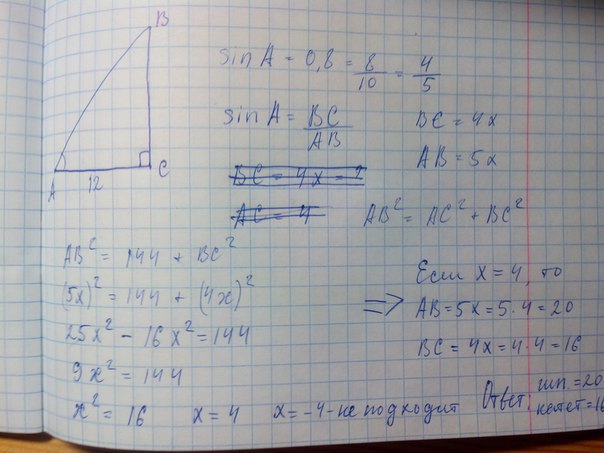 B
A
12
C
sin A = 0,8 = 8/10 = 4/5
sin A = BC/AB
BC = 4x
AB = 5x
BC = 4x = 2
AC = 4
AB² = AC² + BC²
AB² = 144 + BC²
(5x)² = 144 + (4x)²
25x² - 16x² = 144
9x² = 144
x² = 16 x = 4 x = -4 - не подходит
=> Если x = 4, то
AB = 5x = 5·4 = 20
BC = 4x = 4·4 = 16
Ответ: гип. = 20
катет = 16